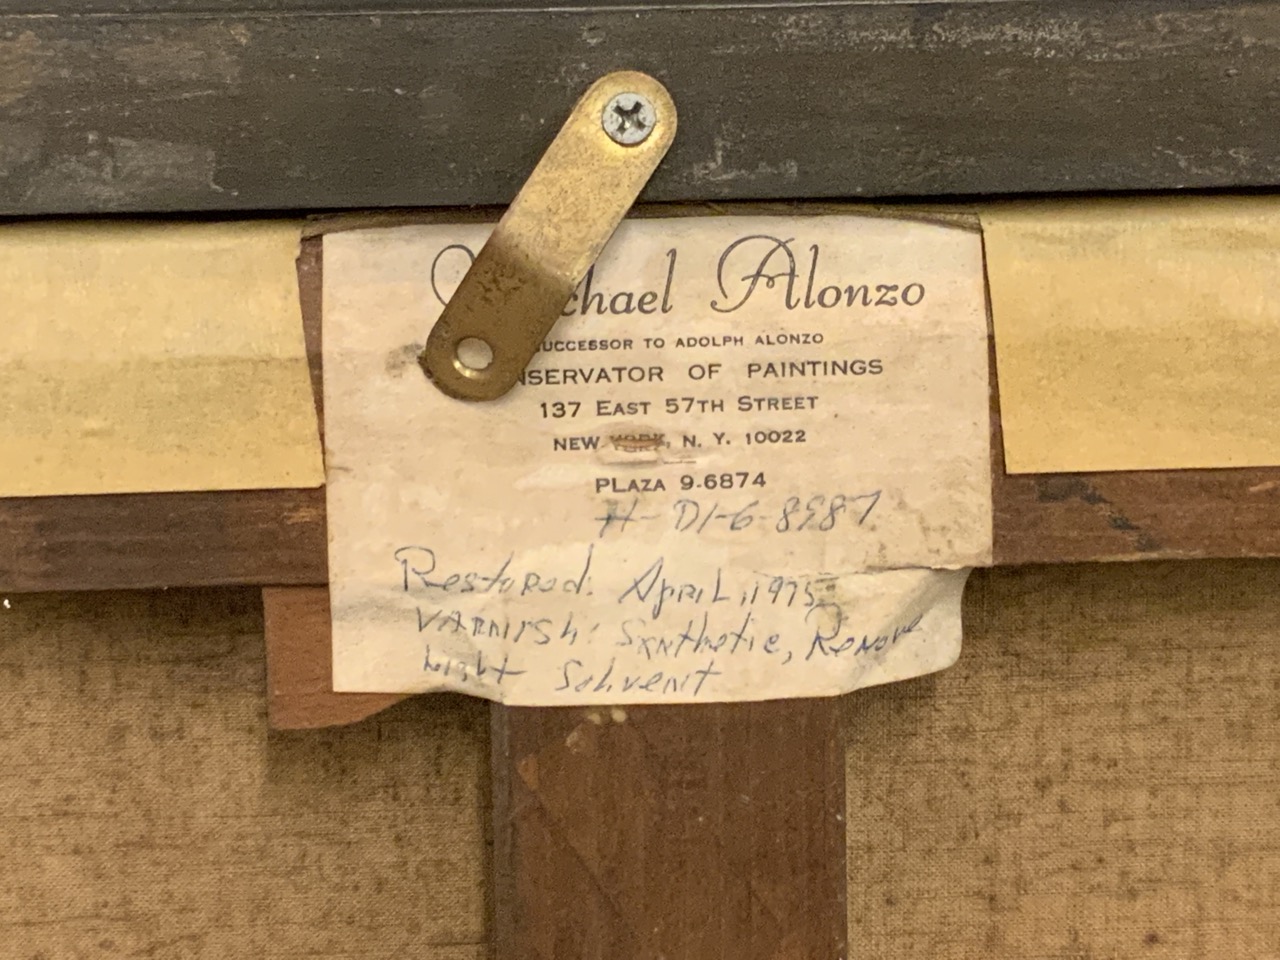 chael Alonzo
UCCESSOR TO ADOLPH ALONZO
NSERVATOR OF PAINTINGS
137 EAST 57TH STREET
NEW YORK, N. Y. 10022
PLAZA 9-6874
H- DI-6-8987
Restored: April, 1975
VARNISH: Synthetic, Remove
Light Solvent